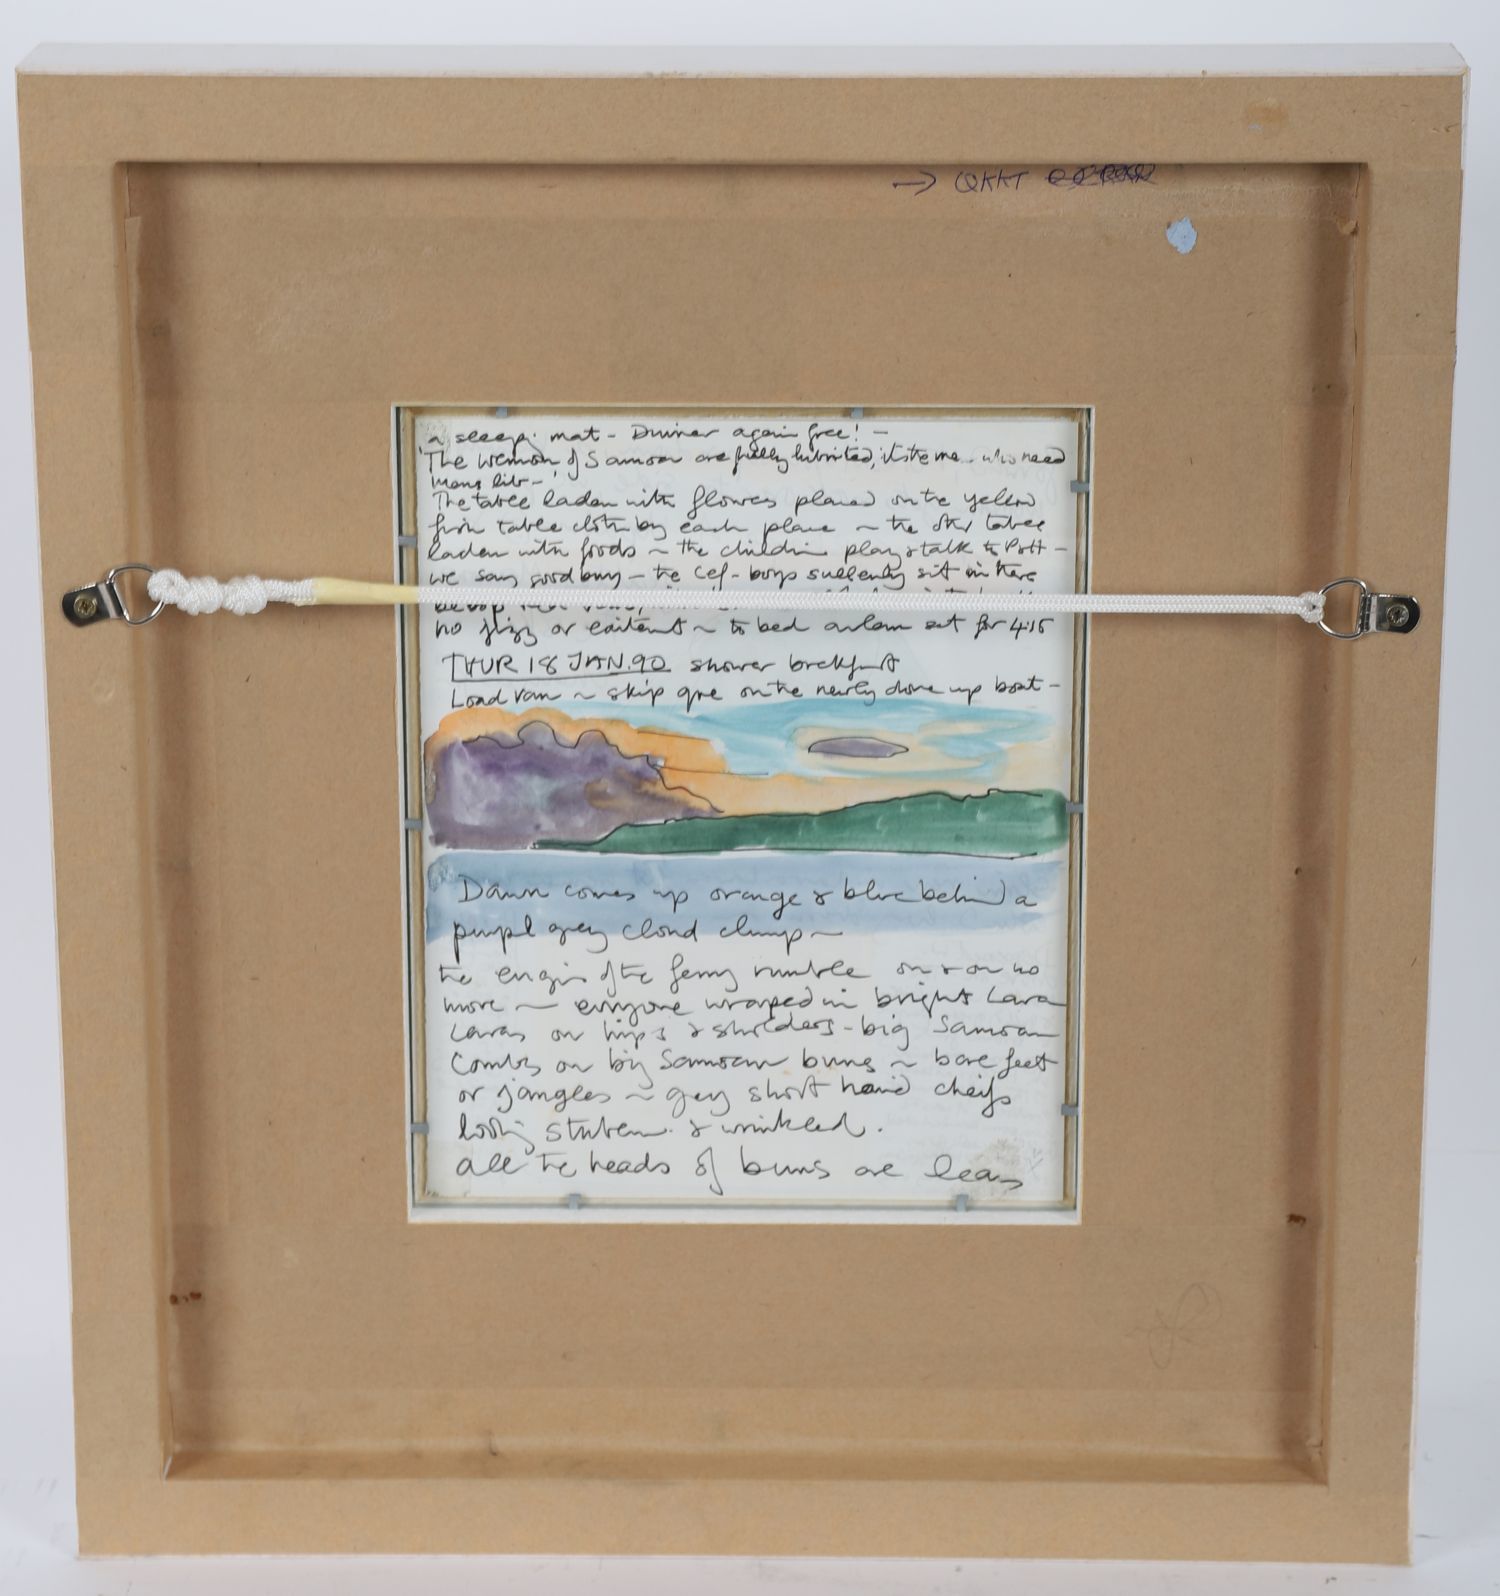 → QKKT
a sleepi mat - Dinner again free! -
'The women of Samoa are fully librited, its the me who need
mens lib - '
The table laden with flowers placed on the yellow
fish table cloth by each place ~ the othr table
laden with foods ~ the children play & talk to Pott -
we say good buy - the boys sullenly sit in there
no jizz or exitemt ~ to bed alarm set for 4.15
THUR 18 JAN. 90 shower breckfust
Load van ~ skip gre on the newly done up boat -
Dawn comes up orange & blue behind a
purpl grey cloud clump ~
the engin of the ferry rumble on & on no
more ~ everyone wraped in bright Lava
Lavas on hips & sholders - big Samoan
Combs on big Samoan buns ~ bare feet
or jangles ~ grey short haird cheifs
looking & wrinkled.
all the heads of buns are